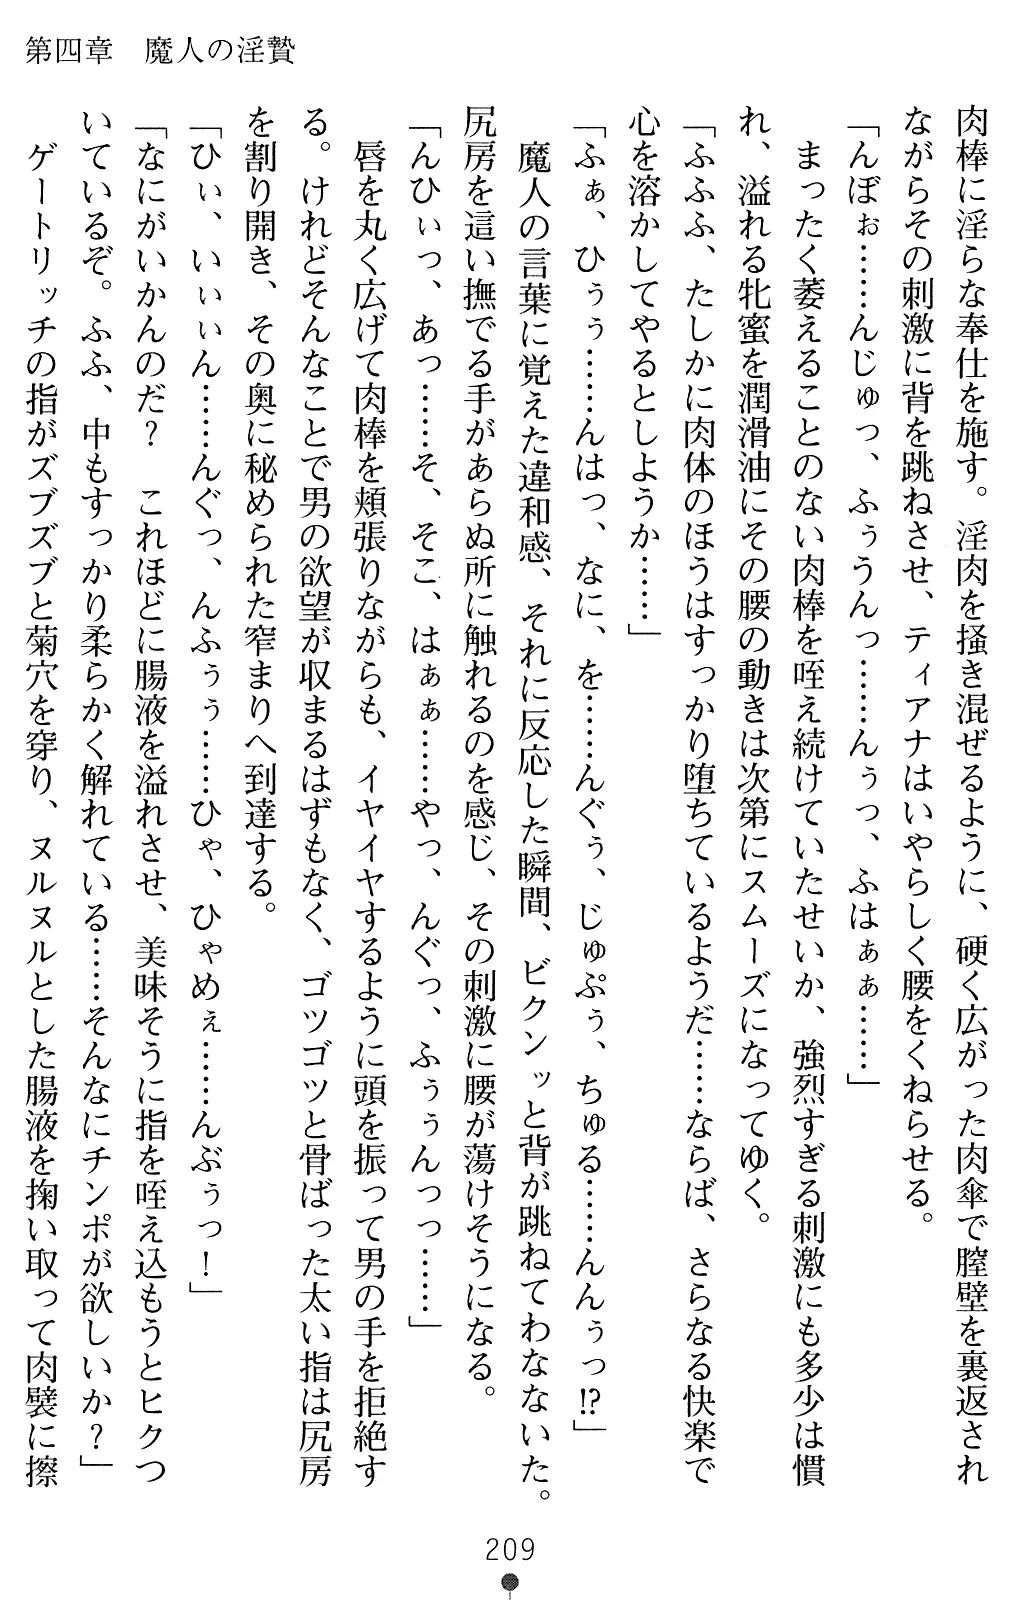 第四章　魔人の淫贄
肉棒に淫らな奉仕を施す。淫肉を掻き混ぜるように、硬く広がった肉傘で膣壁を裏返され
ながらその刺激に背を跳ねさせ、ティアナはいやらしく腰をくねらせる。
「んぼぉ……んじゅっ、ふぅうんっ……んぅっ、ふはぁぁ……」
まったく萎えることのない肉棒を咥え続けていたせいか、強烈すぎる刺激にも多少は慣
れ、溢れる牝蜜を潤滑油にその腰の動きは次第にスムーズになってゆく。
「ふふふ、たしかに肉体のほうはすっかり堕ちているようだ……ならば、さらなる快楽で
心を溶かしてやるとしようか……」
「ふぁ、ひぅぅ……んはっ、なに、を……んぐぅ、じゅぷぅ、ちゅる……んんぅっ!?」
魔人の言葉に覚えた違和感、それに反応した瞬間、ビクンッと背が跳ねてわなないた。
尻房を這い撫でる手があらぬ所に触れるのを感じ、その刺激に腰が蕩けそうになる。
「んひぃっ、あっ……そ、そこ、はぁぁ……やっ、んぐっ、ふぅぅんっっ……」
唇を丸く広げて肉棒を頬張りながらも、イヤイヤするように頭を振って男の手を拒絶す
る。けれどそんなことで男の欲望が収まるはずもなく、ゴツゴツと骨ばった太い指は尻房
を割り開き、その奥に秘められた窄まりへ到達する。
「ひぃ、いぃぃん……んぐっ、んふぅぅ……ひゃ、ひゃめぇ……んぶぅっ！」
「なにがいかんのだ？　これほどに腸液を溢れさせ、美味そうに指を咥え込もうとヒクつ
いているぞ。ふふ、中もすっかり柔らかく解れている……そんなにチンポが欲しいか？」
ゲートリッチの指がズブズブと菊穴を穿り、ヌルヌルとした腸液を掬い取って肉襞に擦
209